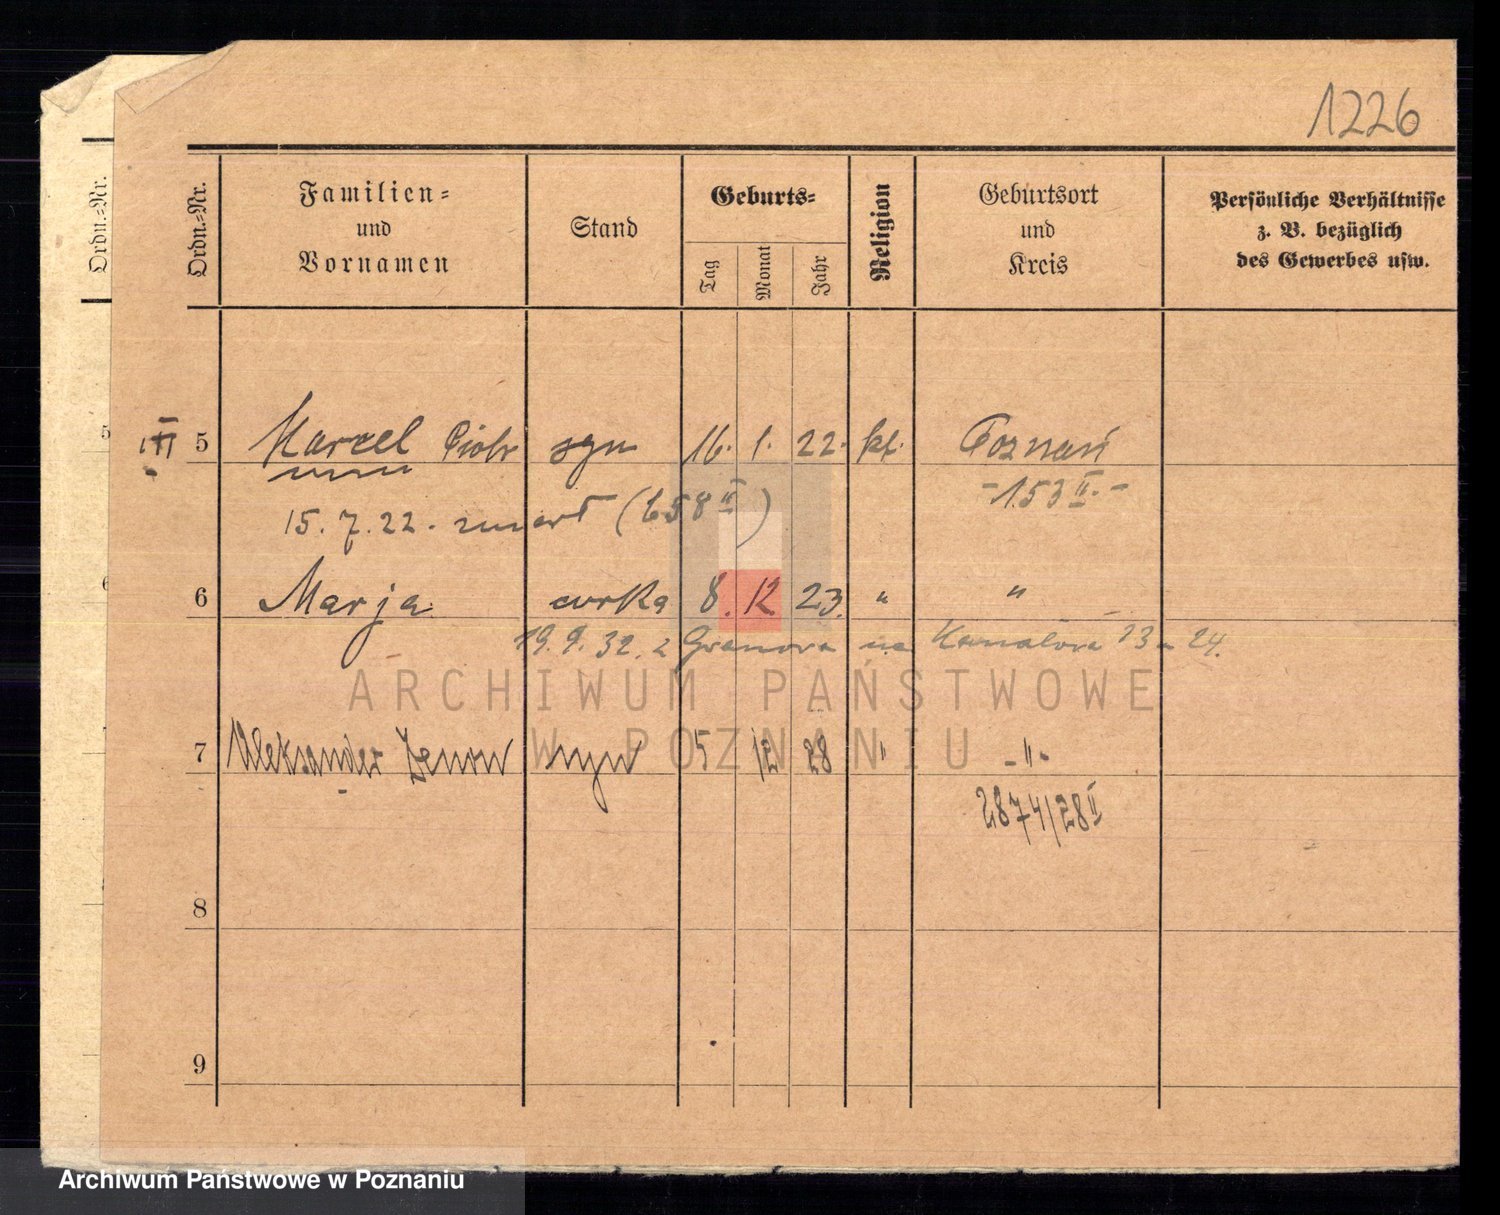 1226
Ordn.-Nr.
Ordn.-Nr.
Familien-
und
Vornamen
Stand
Geburts-
Tag
Monat
Jahr
Religion
Geburtsort
und
Kreis
Persönliche Verhältnisse
z. B. bezüglich
des Gewerbes usw.
5
III 5 Marcel Piotr syn 16. 1. 22. kt. Poznań
-153 II.-
15. 7. 22. zmarł (658 II)
6
6 Marja córka 8. 12 23. " "
19. 9. 32. z Granowa na Kanałowa 23 24.
7 Aleksander Zenon syn 5 12 28 " -"-
2874/28 II
8
9
ARCHIWUM PAŃSTWOWE
W POZNANIU
Archiwum Państwowe w Poznaniu